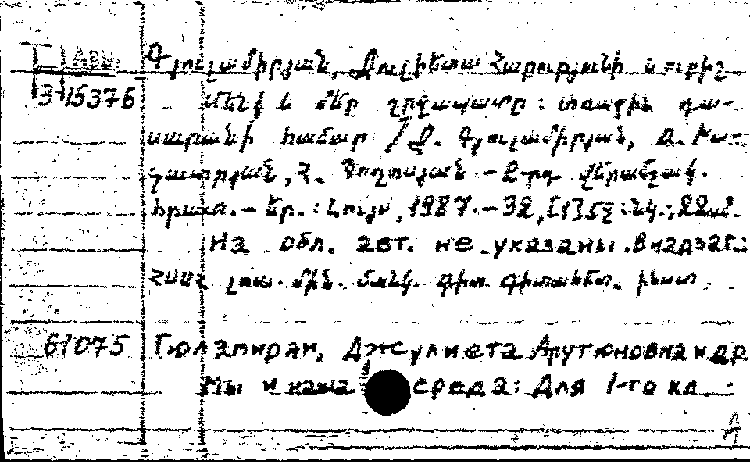 Գյուլամիրյան, Ջուլիետա Հարությունի և ուրիշ
3-15376 Մենք և մեր շրջապատը : տասցին դա-
սարանի համար / Ջ. Գյուլամիրյան, Ա. Կա-
րապետյան, Հ. Պողոսյան - 2-րդ վերամշակ.
հրատ. - Եր. : Լույս, 1987. - 32, [1] էջ : նկ.; 22սմ.
На обл. авт. не указаны. В надзаг.:
ՀՍՍՀ լուս. մին. մանկ. գիտ. հետ. ինստ.
61075 Гюламирян, Джульета Арутюновна и др
Мы и наша среда: Для 1-го кл